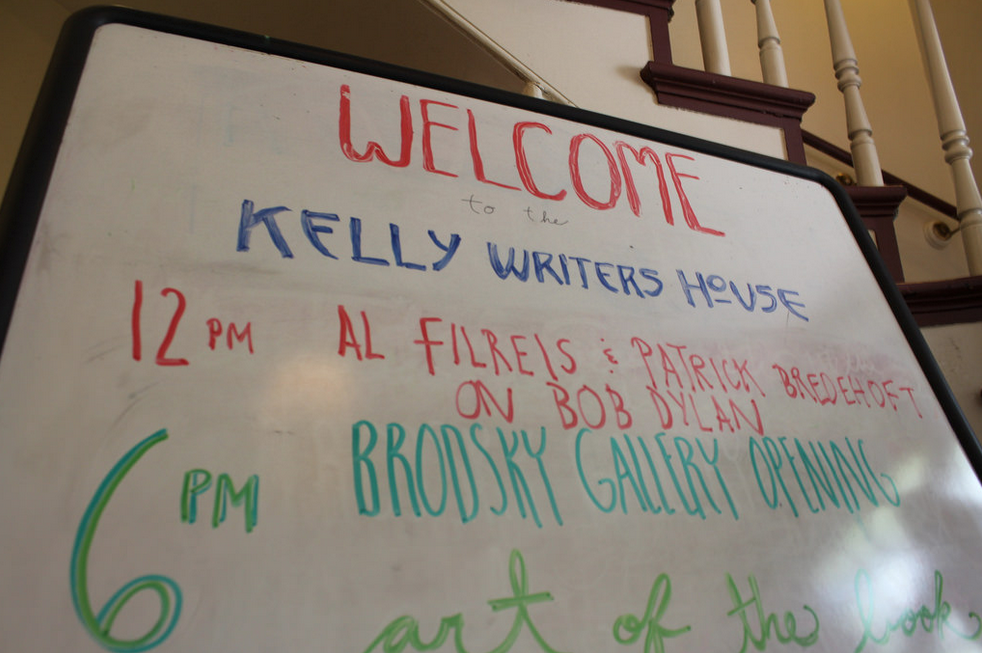 WELCOME
to the
KELLY WRITERS HOUSE
12 PM AL FILREIS & PATRICK BREDEHOFT
ON BOB DYLAN
6 PM BRODSKY GALLERY OPENING
art of the book